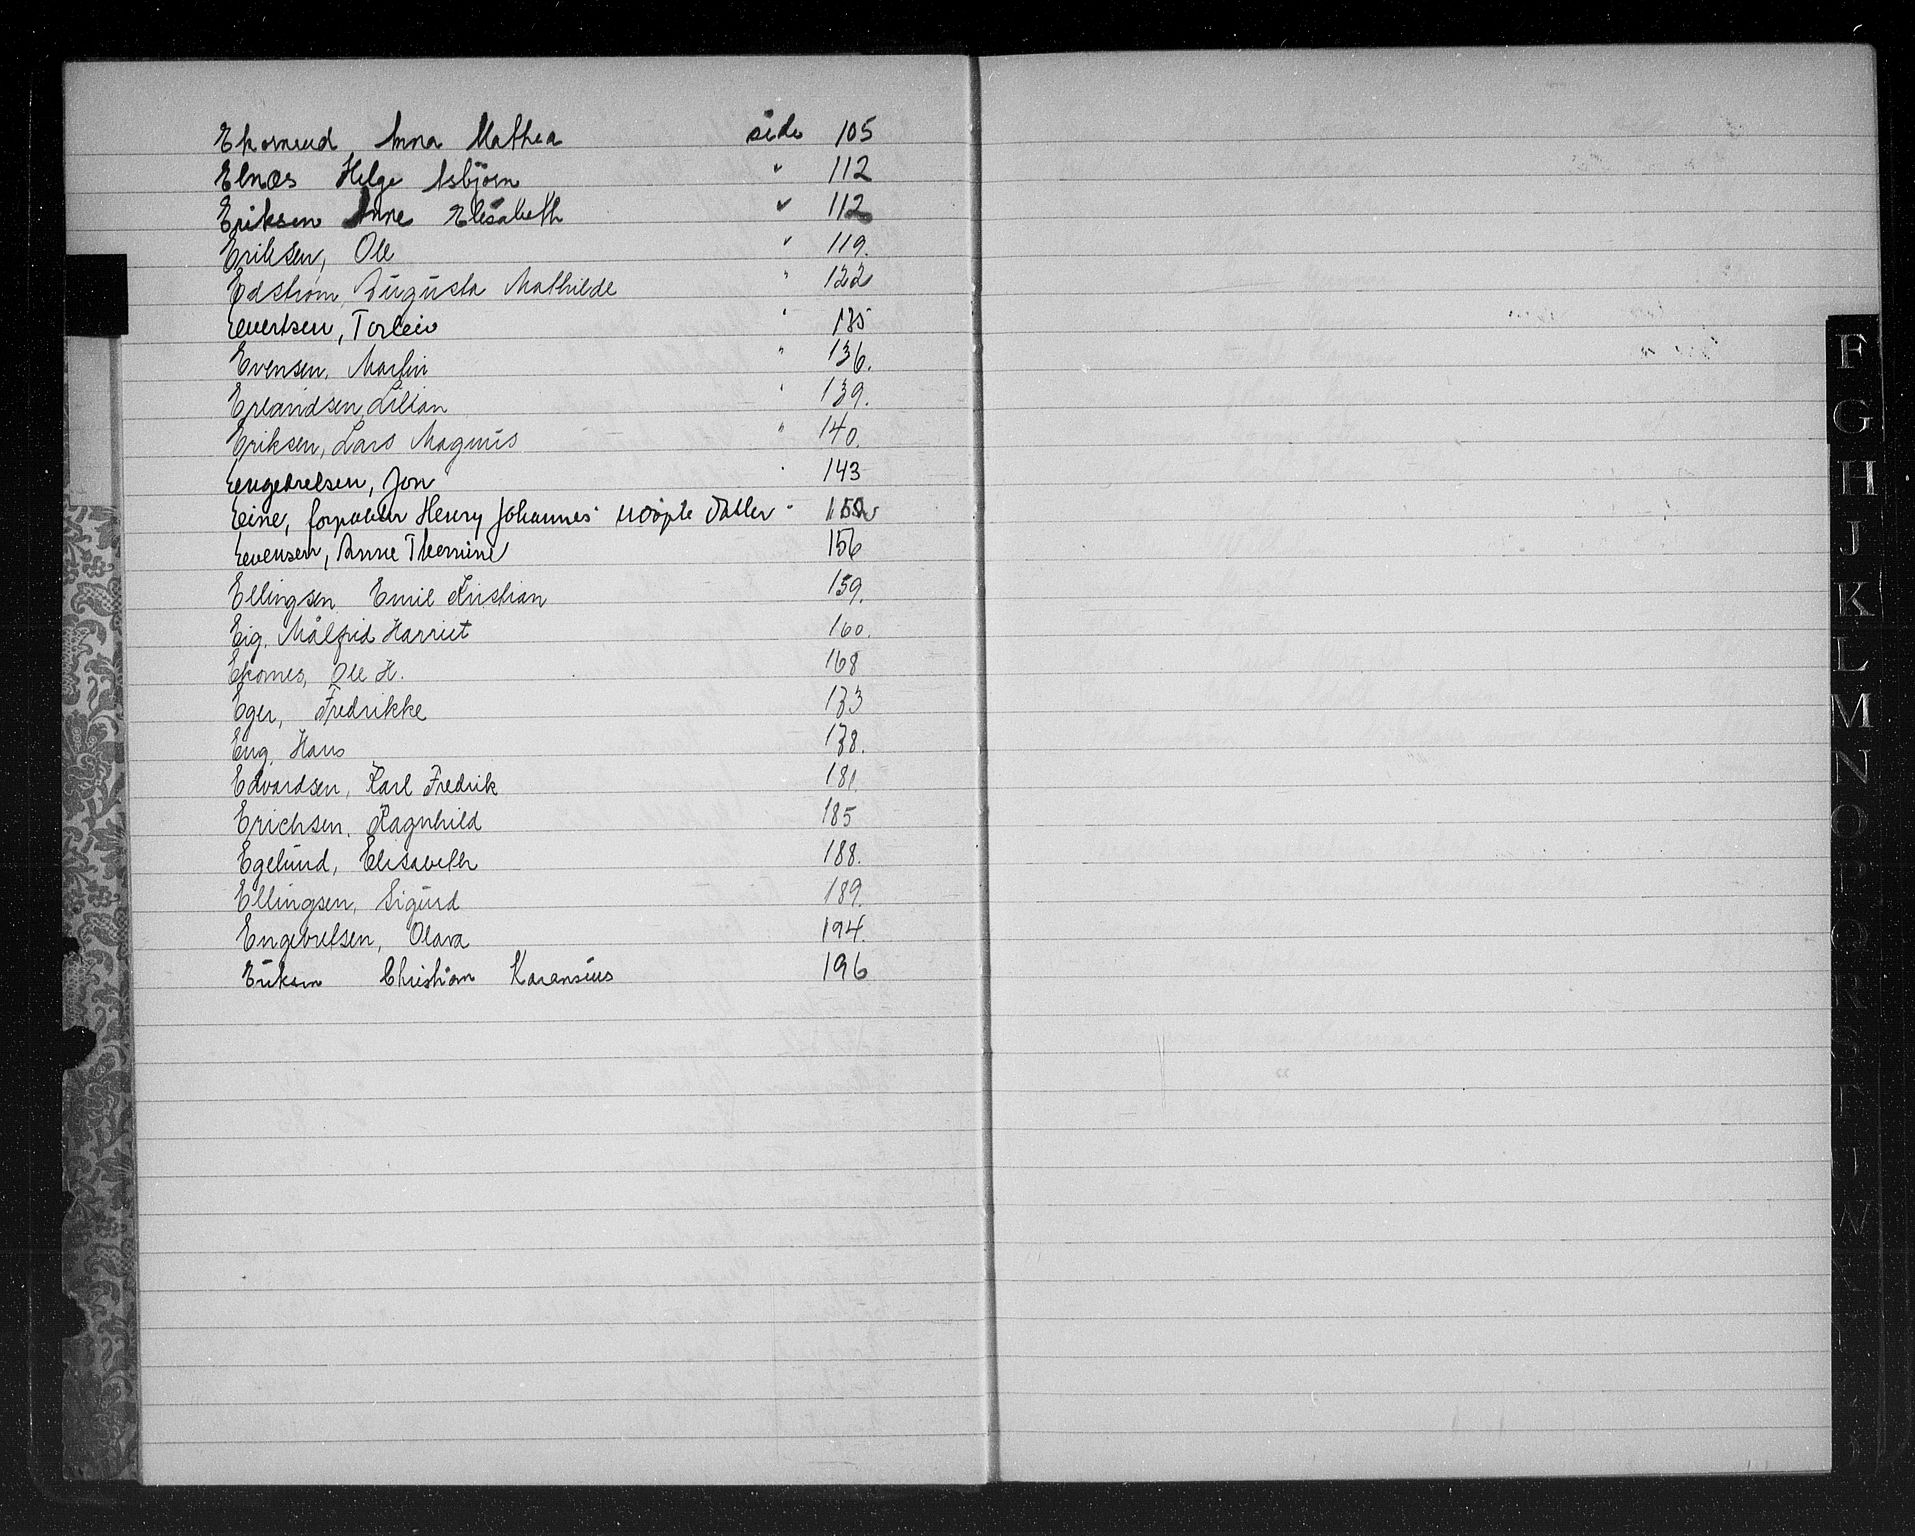 Ekornrud Anna Mathea side 105
Elnæs Helge Asbjørn " 112
Eriksen Anne Elisabeth " 112
Eriksen, Ole " 119.
Edstrøm, Augusta Mathilde " 122
Evertsen, Torleiv " 135
Evensen, Martin " 136.
Erlandsen, Lilian " 139.
Eriksen, Lars Magnus " 140.
Engebretsen, Jon " 143
Eine, forpakter Henry Johannes' udøpte datter "
Evensen, Anne Thormine 156
Ellingsen Emil Kristian 159.
Eig, Målfrid Harriet 160.
Ekornes, Ole H. 168
Eger, Fredrikke 173
Eng, Hans 178.
Edvardsen, Karl Fredrik 181.
Erichsen, Ragnhild 185
Egelund, Elisabeth 188.
Ellingsen, Sigurd 189.
Engebretsen, Olava 194.
Eriksen Christian Karensius 196
F
G
H
J
K
L
M
N
O
P
Q
R
S
T